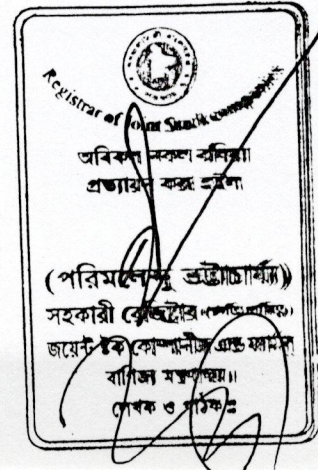 Registrar of Joint Stock
অবিকল নকল
প্রত্যায়ন করা হইল
(পরিমলেন্দু ভট্টাচার্য্য)
সহকারী রেজিষ্ট্রার
জয়েন্ট ষ্টক কোম্পানীজ এ্যান্ড ফার্মস
বাণিজ্য মন্ত্রণালয়।
লেখক ও পাঠকঃ